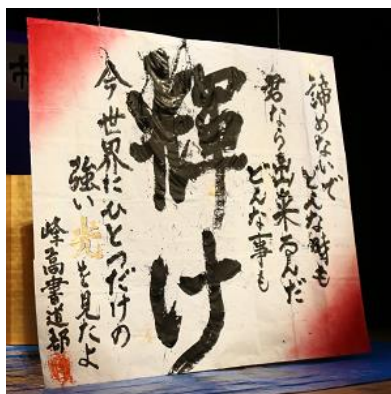 諦めないで
どんな時も
君なら出来るんだ
どんな事も
輝け
今世界にひとつだけの
強い光を見たよ
峰高書道部